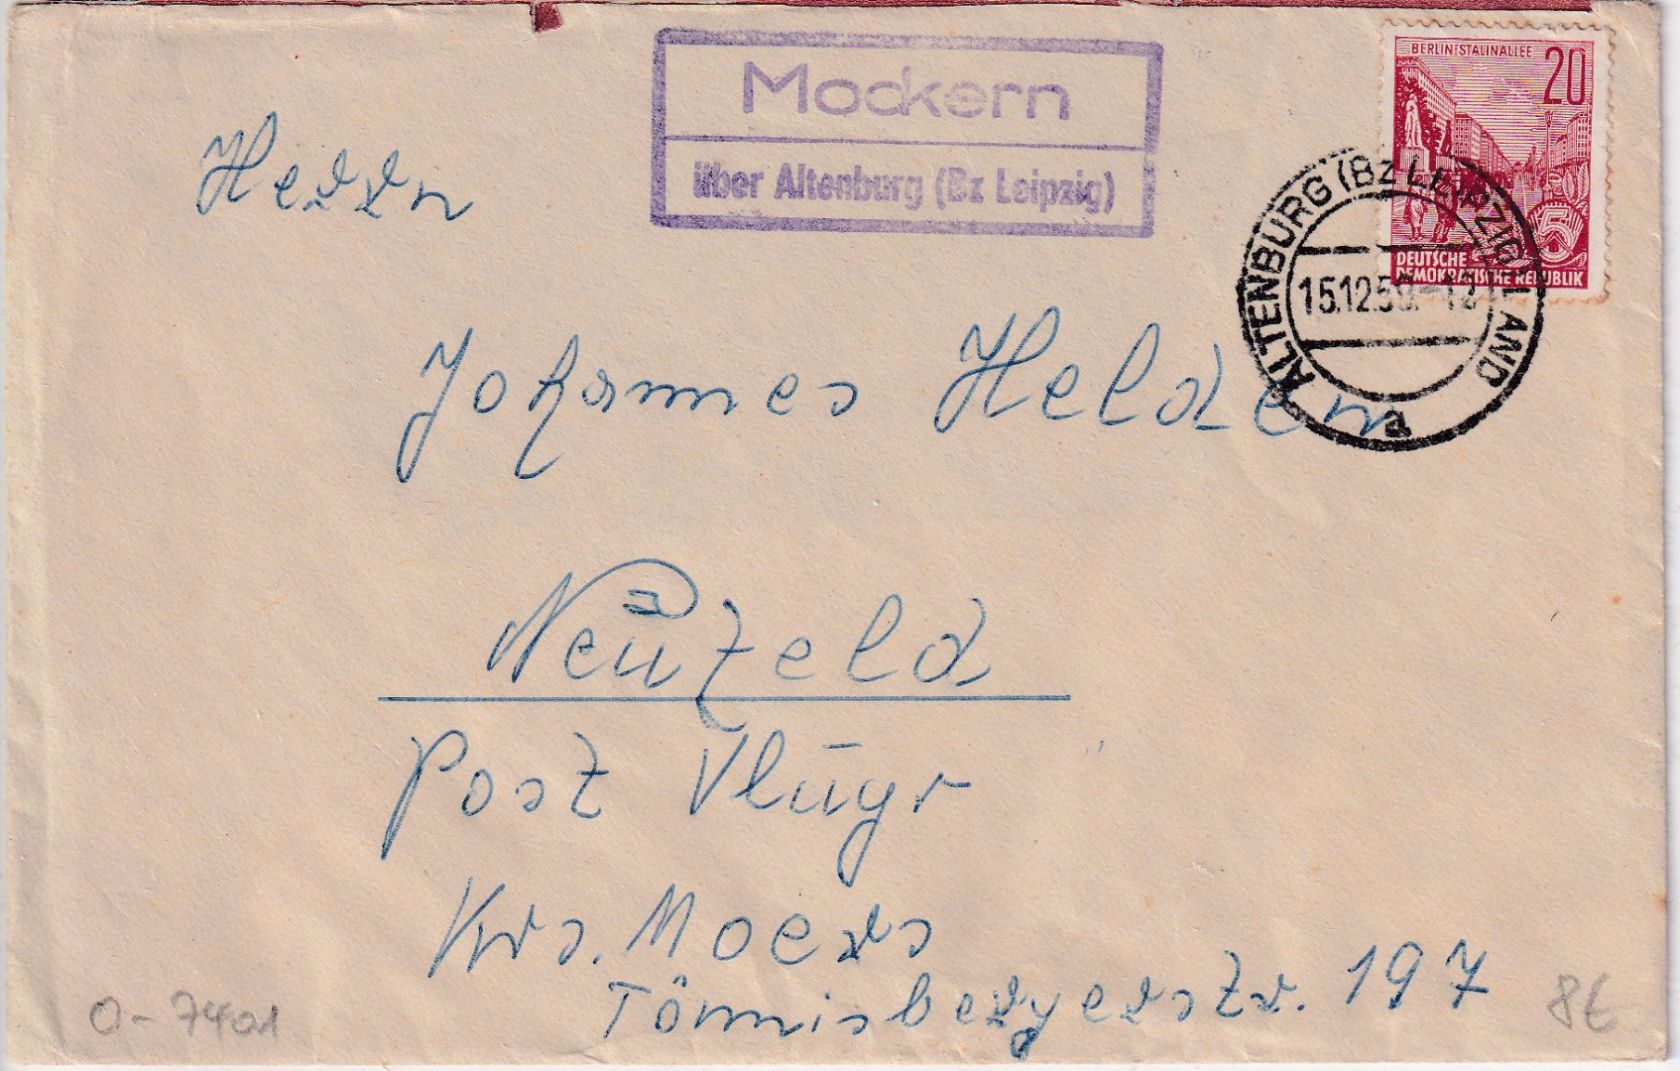 Mockern
über Altenburg (Bz Leipzig)
BERLIN STALINALLEE
20
5
DEUTSCHE
DEMOKRATISCHE REPUBLIK
ALTENBURG (Bz LEIPZIG) LAND
15.12.59.-12
a
Herrn
Johannes Helden
Neufeld
Post Vluyn
Krs. Moers
Tönnisbergerstr. 197
O-7401
8€